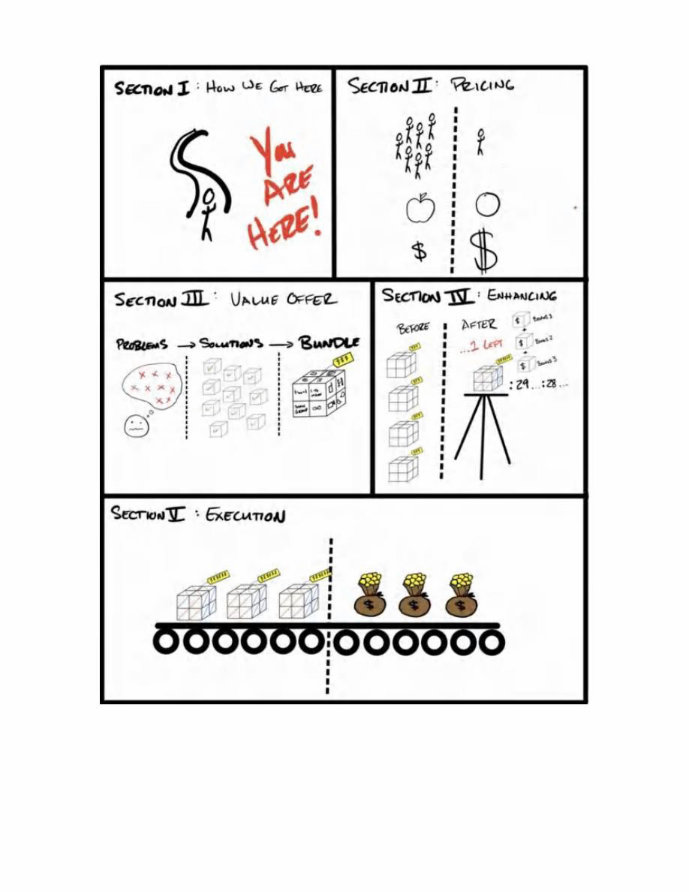 SECTION I : HOW WE GOT HERE
YOU
ARE
HERE!
SECTION II : PRICING
$ $
SECTION III : VALUE OFFER
PROBLEMS → SOLUTIONS → BUNDLE
$$$
SECTION IV : ENHANCING
BEFORE
AFTER
...1 LEFT
$ BONUS 1
+
$ BONUS 2
+
$ BONUS 3
:29...:28...
SECTION V : EXECUTION
$ $ $